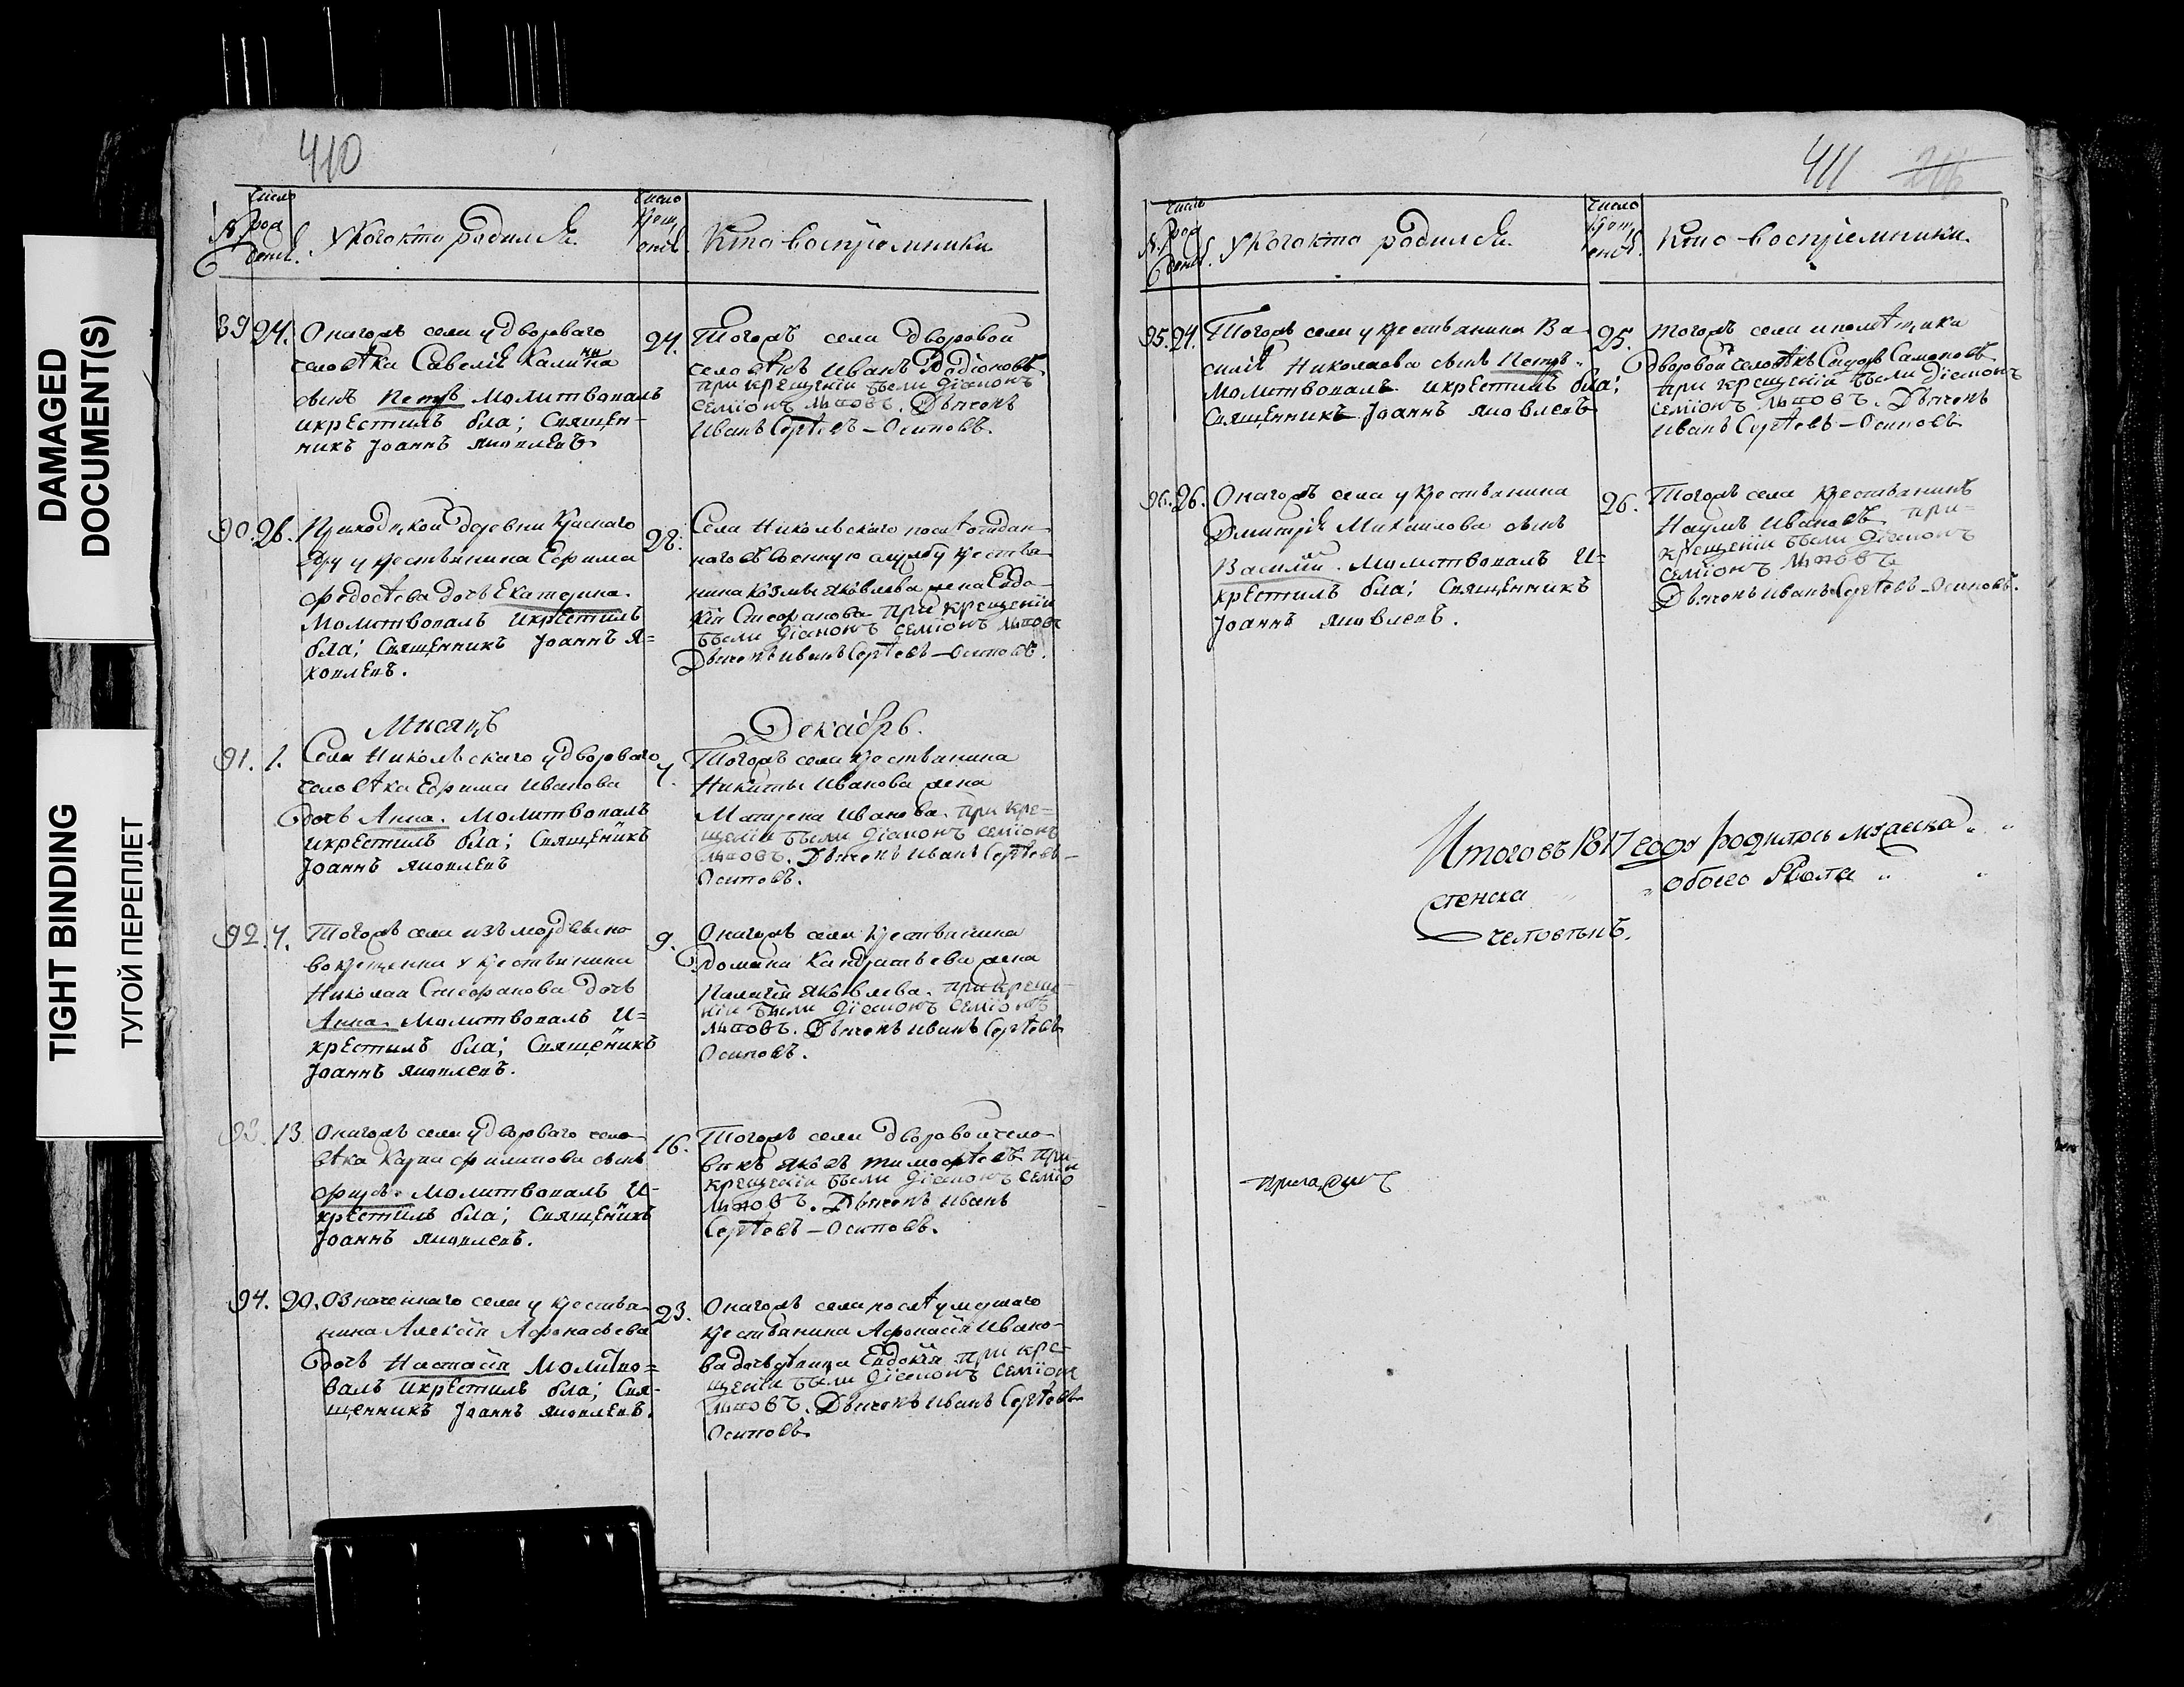 DAMAGED
DOCUMENT(S)
TIGHT BINDING
ТУГОЙ ПЕРЕПЛЕТ
410
число
род
У кого кто родился.
число
крещ
Кто восприемники
89 24. Онагожъ села у двороваго
человѣка Савелія Калинина
сынъ Петръ молитвовалъ
икрестилъ бла; Священ-
никъ Іоаннъ Яковлевъ
24. Тогожъ села дворовой
человѣкъ Иванъ Родіоновъ
при крещеніи были діаконъ
семіонъ львовъ. Дьячекъ
Иванъ Сергѣевъ – Осиповъ.
90. 26. Приходской деревни Краснаго
у крестьянина Ефрима
Федосѣева дочь Екатерина.
Молитвовалъ икрестилъ
бла; Священникъ Іоаннъ Я=
ковлевъ.
28. Села Никольскаго послѣ отдан
наго въ военную службу крестья
нина козмы яковлева жена Евдо
кія Стефанова при крещеніи
были діаконъ семіонъ львовъ
Дьячекъ иванъ Сергѣевъ – Осиповъ.
Мисяцъ Декабрь.
91. 1. Села Никольскаго у двороваго
человѣка Ефрима Иванова
дочь Анна. Молитвовалъ
икрестилъ бла; Священикъ
Іоаннъ яковлевъ
Тогожъ села крестьянина
Никиты Иванова жена
Матрена Иванова. при кре=
щеніи были діаконъ семіонъ
львовъ. Дьячекъ иванъ Сергѣевъ –
Осиповъ.
92. 7. Тогожъ села изъ мордвы но
вокрещенна у крестьянина
Николая Стефанова дочь
Анна. Молитвовалъ И=
крестилъ бла; Священикъ
Іоаннъ яковлевъ.
9. Онагожъ села крестьянина
Романа Кандратьева жена
Палагія яковлева. при креще
ніи были діаконъ семіонъ
львовъ. Дьячекъ иванъ Сергѣевъ
Осиповъ.
93. 13 Онагожъ села у двороваго чело
вѣка Карпа Филипова сынъ
Молитвовалъ И-
крестилъ бла; Священикъ
Іоаннъ яковлевъ.
16. Тогожъ села дворовой чело
викъ яковъ тимофѣевъ при
крещеніи были діаконъ семіо
львовъ. Дьячекъ иванъ
Сергѣевъ – Осиповъ.
94. 20. Означеннаго села у крестья
нина Алексія Афонасьева
дочь Настасія молитво=
валъ икрестилъ бла; Свя-
щенникъ Іоаннъ яковлевъ.
23. Онагожъ села послѣ умершаго
крестьянина Афонасія Ивано-
ва дочь дѣвица Евдокія при кре-
щеніи были діаконъ семіонъ
львовъ. Дьячекъ иванъ Сергѣевъ
Осиповъ.
411
число
род
У кого кто родился.
число
крещ
Кто восприемники.
95. 24. Тогожъ села у крестьянина Ва
силія Николаева сынъ Петръ.
молитвовалъ икрестилъ бла;
Священникъ Іоаннъ яковлевъ
25. тогожъ села
дворовой человѣкъ Сидоръ
при крещеніи были діаконъ
семіонъ львовъ. Дьячекъ
иванъ Сергѣевъ – Осиповъ
96. 26. Онагожъ села у крестьянина
Дмитрія Михаилова сынъ
Василій. Молитвовалъ И=
крестилъ бла; Священникъ
Іоаннъ яковлевъ.
26. Тогожъ села крестьянинъ
Наумъ ивановъ при-
крещеніи были діаконъ
семіонъ львовъ
Дьячекъ иванъ Сергѣевъ – Осиповъ.
Итого въ 1817 году родилось мужска
женска обоего пола
человѣкъ.